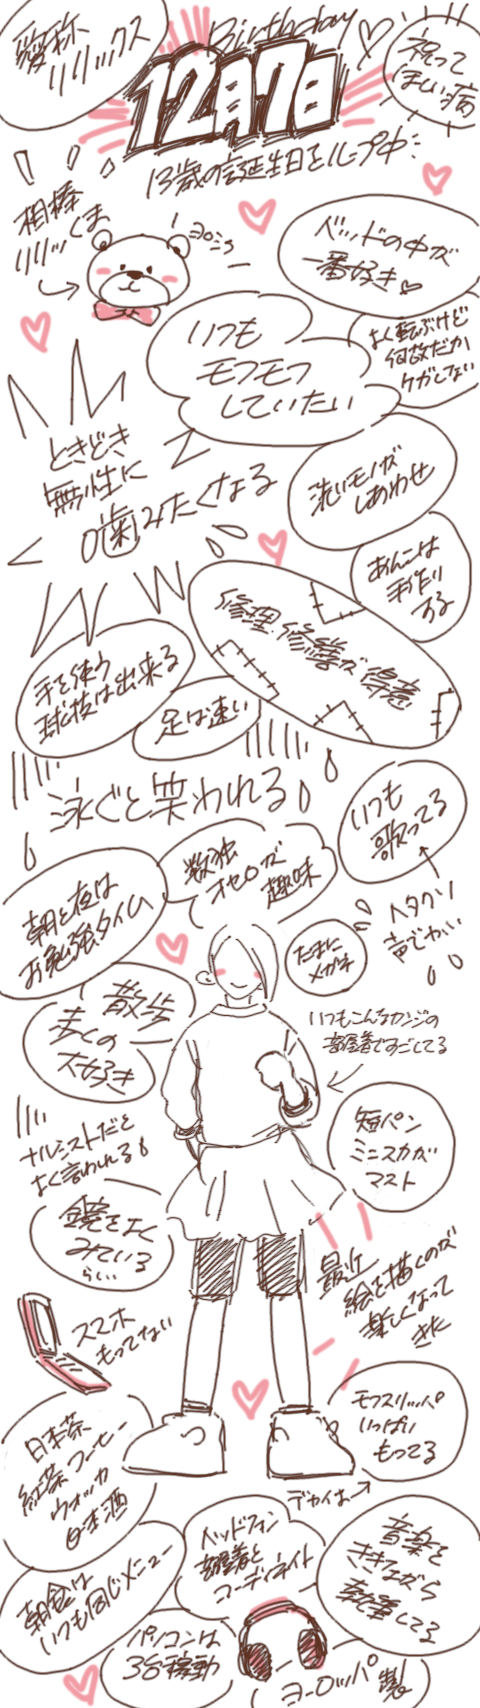 愛称
リリックス
Birthday
12月7日
祝って
ほしい病
13歳の誕生日をループ中
相棒
リリッくま
ヨロシク
ベッドの中が
一番好き
いつも
モフモフ
していたい
よく転ぶけど
何故だか
ケガしない
ときどき
無性に
噛みたくなる
洗いモノが
しあわせ
あんこは
手作り
する
修理・修繕が得意
手を使う
球技は出来る
足は速い
泳ぐと笑われる
いつも
歌ってる
ヘタクソ
声でかい
数独
オセロが
趣味
朝と夜は
お勉強タイム
たまに
メガネ
散歩
歩くの
大好き
いつもこんなカンジの
部屋着ですごしてる
短パン
ミニスカが
マスト
ナルシストだと
よく言われる
鏡をよく
みている
らしい
最近
絵を描くのが
楽しくなって
きた
スマホ
もってない
モフスリッパ
いっぱい
もってる
デカイよ
日本茶
紅茶 コーヒー
ウォッカ
日本酒
ヘッドフォン
部屋着と
コーディネイト
音楽を
ききながら
執筆してる
朝食は
いつも同じメニュー
パソコンは
3台稼動
ヨーロッパ製